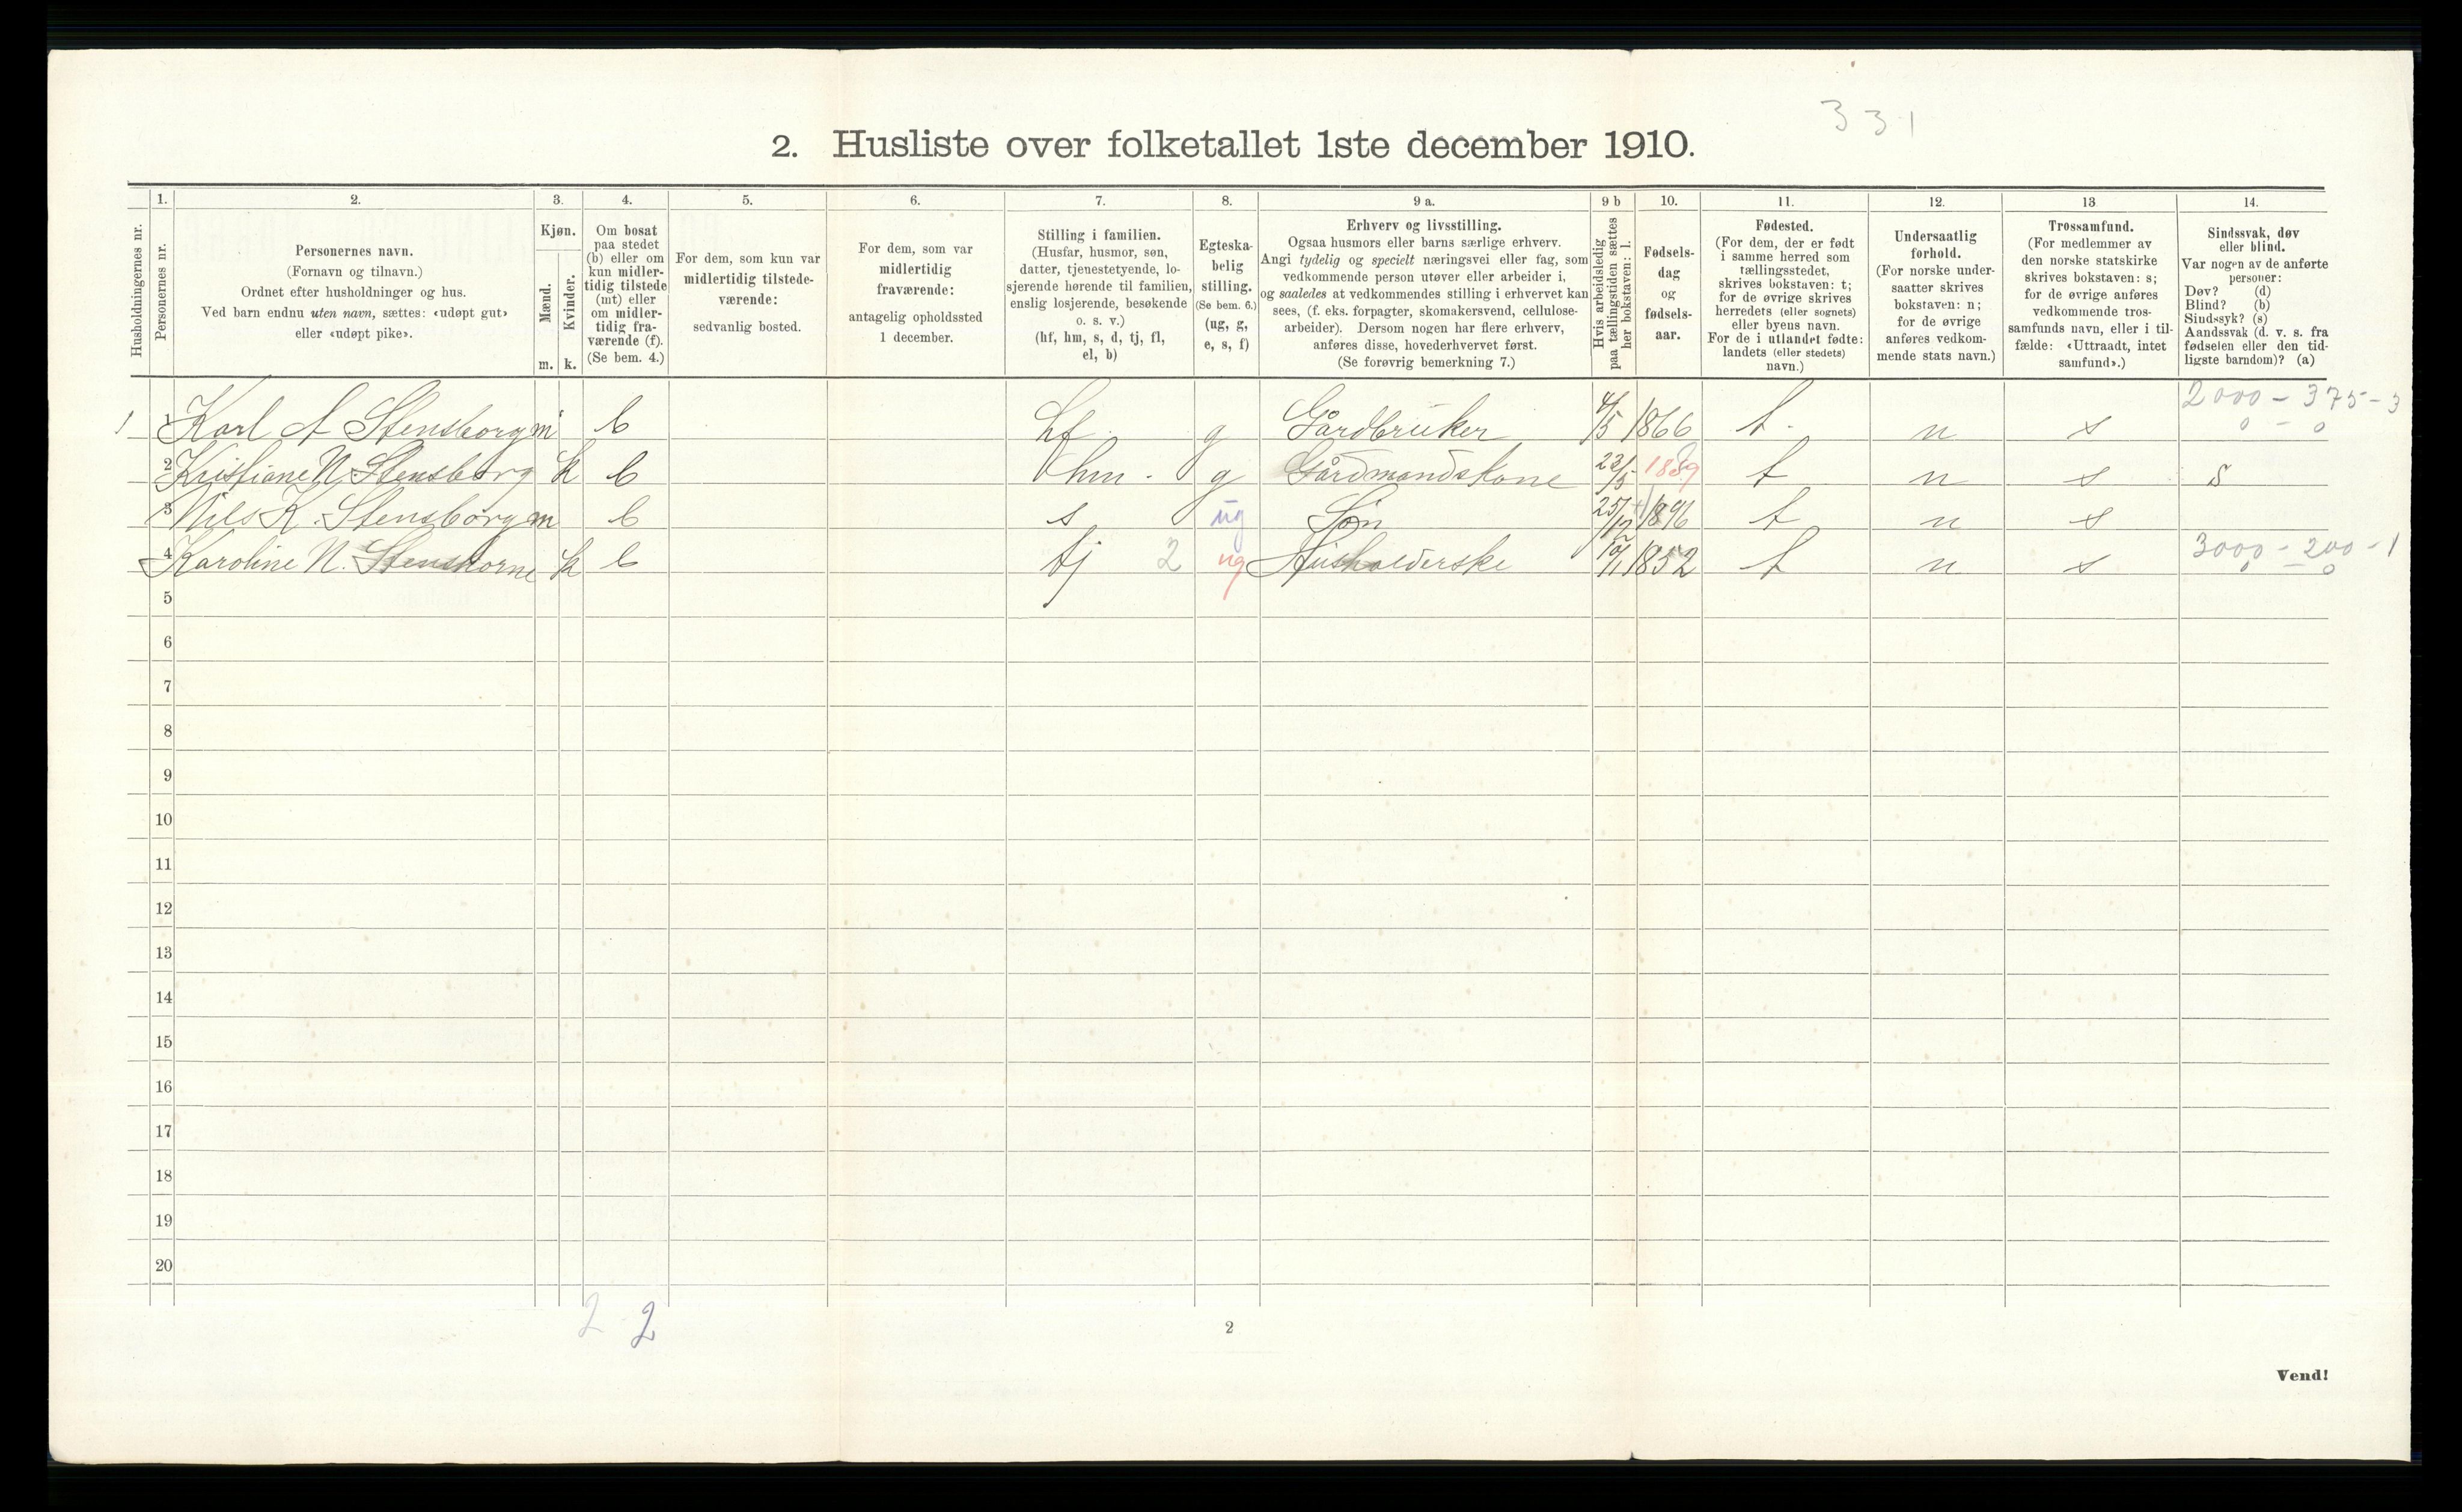 331
2. Husliste over folketallet 1ste december 1910.
1. 2. 3. 4. 5. 6. 7. 8. 9 a. 9 b 10. 11. 12. 13 14.
Husholdningernes nr.
Personernes nr.
Personernes navn.
(Fornavn og tilnavn.)
Ordnet efter husholdninger og hus.
Ved barn endnu uten navn, sættes: «udøpt gut»
eller «udøpt pike».
Kjøn.
Mænd.
Kvinder.
m. k.
Om bosat
paa stedet
(b) eller om
kun midler-
tidig tilstede
(mt) eller
om midler-
tidig fra-
værende (f).
(Se bem. 4.)
For dem, som kun var
midlertidig tilstede-
værende:
sedvanlig bosted.
For dem, som var
midlertidig
fraværende:
antagelig opholdssted
1 december.
Stilling i familien.
(Husfar, husmor, søn,
datter, tjenestetyende, lo-
sjerende hørende til familien,
enslig losjerende, besøkende
o. s. v.)
(hf, hm, s, d, tj, fl,
el, b)
Egteska-
belig
stilling.
(Se bem. 6.)
(ug, g,
e, s, f)
Erhverv og livsstilling.
Ogsaa husmors eller barns særlige erhverv.
Angi tydelig og specielt næringsvei eller fag, som
vedkommende person utøver eller arbeider i,
og saaledes at vedkommendes stilling i erhvervet kan
sees, (f. eks. forpagter, skomakersvend, cellulose-
arbeider). Dersom nogen har flere erhverv,
anføres disse, hovederhvervet først.
(Se forøvrig bemerkning 7.)
Hvis arbeidsledig
paa tællingstiden sættes
her bokstaven: l.
Fødsels-
dag
og
fødsels-
aar.
Fødested.
(For dem, der er født
i samme herred som
tællingsstedet,
skrives bokstaven: t;
for de øvrige skrives
herredets (eller sognets)
eller byens navn.
For de i utlandet fødte:
landets (eller stedets)
navn.)
Undersaatlig
forhold.
(For norske under-
saatter skrives
bokstaven: n;
for de øvrige
anføres vedkom-
mende stats navn.)
Trossamfund.
(For medlemmer av
den norske statskirke
skrives bokstaven: s;
for de øvrige anføres
vedkommende tros-
samfunds navn, eller i til-
fælde: «Uttraadt, intet
samfund».)
Sindssvak, døv
eller blind.
Var nogen av de anførte
personer:
Døv? (d)
Blind? (b)
Sindssyk? (s)
Aandssvak (d. v. s. fra
fødselen eller den tid-
ligste barndom)? (a)
2000 - 375 - 3
1 1 Karl A Stensborg m b hf g Gårdbruker 4/5 1866 t n s 0 - 0
2 Kristiane N. Stensborg k b hm g Gårdmandskone 23/5 t n s S
3 Nils K. Stensborg m b s ug Søn 25/12 1896 t n s
3000 - 200 - 1
4 Karoline N. k b tj 2 ug Husholderske 1852 t n s 0 - 0
5
6
7
8
9
10
11
12
13
14
15
16
17
18
19
20
2 2
2
Vend!